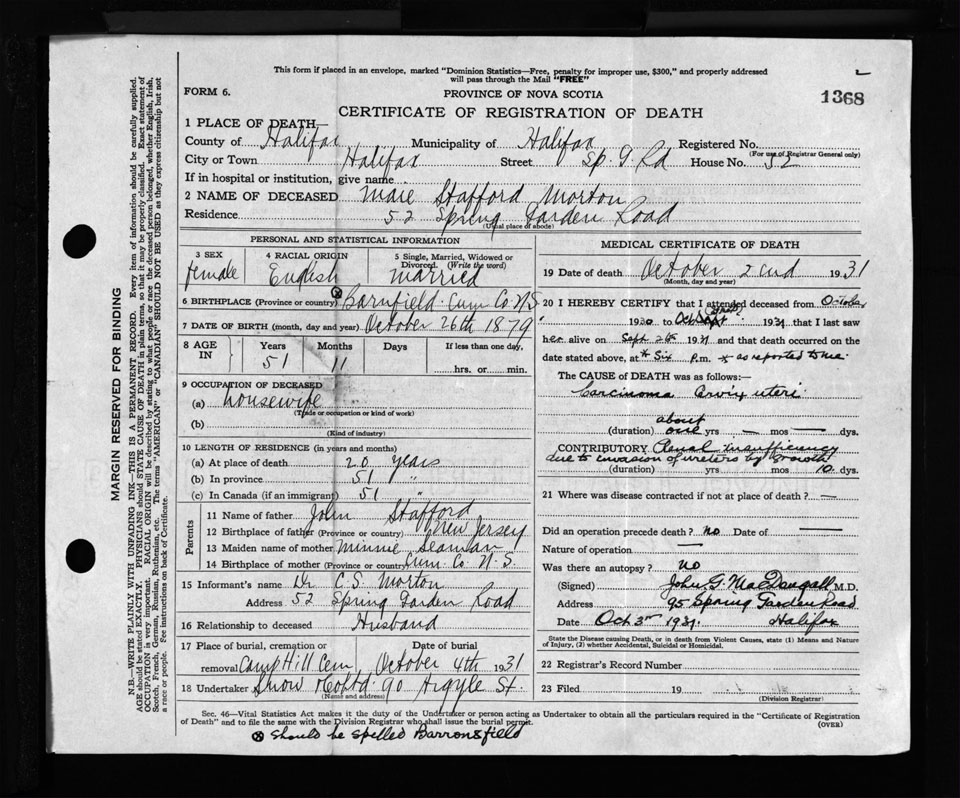 This form if placed in an envelope, marked "Dominion Statistics—Free, penalty for improper use, $300," and properly addressed
will pass through the Mail "FREE"
FORM 6.
PROVINCE OF NOVA SCOTIA
1368
CERTIFICATE OF REGISTRATION OF DEATH
1 PLACE OF DEATH—
County of Halifax Municipality of Halifax Registered No.
(For use of Registrar General only)
City or Town Halifax Street Sp. G. Rd House No. 52
If in hospital or institution, give name
2 NAME OF DECEASED Marie Stafford Morton
Residence 52 Spring Garden Road
(Usual place of abode)
PERSONAL AND STATISTICAL INFORMATION
3 SEX female
4 RACIAL ORIGIN English
5 Single, Married, Widowed or
Divorced. (Write the word)
married
6 BIRTHPLACE (Province or country) Barnfield Cum Co N S
7 DATE OF BIRTH (month, day and year) October 26th 1879
8 AGE IN Years 51 Months 11 Days If less than one day,
hrs. or min.
9 OCCUPATION OF DECEASED
(a) housewife
(Trade or occupation or kind of work)
(b)
(Kind of industry)
10 LENGTH OF RESIDENCE (in years and months)
(a) At place of death 20 years
(b) In province 51 "
(c) In Canada (if an immigrant) 51 "
Parents
11 Name of father John Stafford
12 Birthplace of father (Province or country) New Jersey
13 Maiden name of mother Minnie Seaman
14 Birthplace of mother (Province or country) Cum Co N. S.
15 Informant's name Dr C. S. Morton
Address 52 Spring Garden Road
16 Relationship to deceased Husband
17 Place of burial, cremation or Date of burial
removal Camp Hill Cem October 4th 1931
18 Undertaker Snow & Co Ltd 90 Argyle St.
(Name and address)
MEDICAL CERTIFICATE OF DEATH
19 Date of death October 2nd 1931
(Month, day and year)
20 I HEREBY CERTIFY that I attended deceased from
1930 to 1931 that I last saw
her alive on Sept 26 1931 and that death occurred on the
date stated above, at * Six P.m. * as reported to me.
The CAUSE of DEATH was as follows:—
Carcinoma Cervix uteri
(duration) about one yrs — mos — dys.
CONTRIBUTORY Renal insufficiency
due to invasion of ureters by growth
(duration) yrs mos 10 dys.
21 Where was disease contracted if not at place of death? —
Did an operation precede death? no Date of —
Nature of operation —
Was there an autopsy? no
(Signed) John G. MacDougall M.D.
Address 95 Spring Garden Road
Date Oct 3rd 1931. Halifax
State the Disease causing Death, or in death from Violent Causes, state (1) Means and Nature
of Injury, (2) whether Accidental, Suicidal or Homicidal.
22 Registrar's Record Number
23 Filed 19
(Division Registrar)
Sec. 46—Vital Statistics Act makes it the duty of the Undertaker or person acting as Undertaker to obtain all the particulars required in the "Certificate of Registration
of Death" and to file the same with the Division Registrar who shall issue the burial permit.
(OVER)
⊗ should be spelled Barronsfield
MARGIN RESERVED FOR BINDING
N.B.—WRITE PLAINLY WITH UNFADING INK—THIS IS A PERMANENT RECORD. Every item of information should be carefully supplied.
AGE should be stated EXACTLY. PHYSICIANS should STATE CAUSE OF DEATH in plain terms, so that it may be properly classified. Exact statement of
OCCUPATION is very important. RACIAL ORIGIN will be described by stating to what people or race the deceased person belonged, whether English, Irish,
Scotch, French, German, Russian, Ruthenian, etc. The terms "AMERICAN" or "CANADIAN" SHOULD NOT BE USED as they express citizenship but not
a race or people. See instructions on back of Certificate.